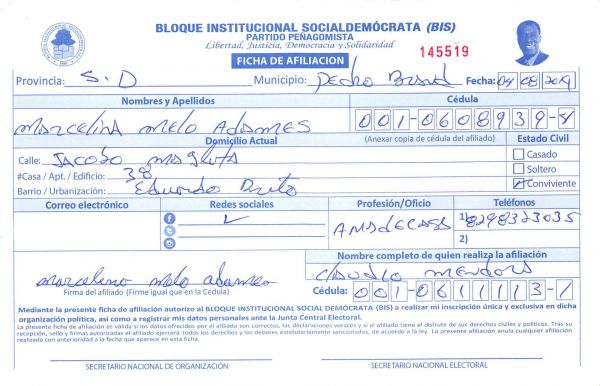 BLOQUE INSTITUCIONAL SOCIALDEMÓCRATA (BIS)
PARTIDO PEÑAGOMISTA
Libertad, Justicia, Democracia y Solidaridad
145519
FICHA DE AFILIACION
Provincia: S.D Municipio: Pedro Brand Fecha: 04 08 2019
Nombres y Apellidos Cédula
Marcelina Melo Adames 001-0608939-8
Domicilio Actual (Anexar copia de cédula del afiliado) Estado Civil
Calle: Jacobo Magluta Casado
#Casa / Apt. / Edificio: 38 Soltero
Barrio / Urbanización: Eduardo Brito Conviviente
Correo electrónico Redes sociales Profesión/Oficio Teléfonos
Ama de Casa 1) 8298323035
2)
Nombre completo de quien realiza la afiliación
Claudio Mendoza
marcelino melo adames
Firma del afiliado (Firme igual que en la Cédula) Cédula: 001-0611113-1
Mediante la presente ficha de afiliación autorizo al BLOQUE INSTITUCIONAL SOCIAL DEMÓCRATA (BIS) a realizar mi inscripción única y exclusiva en dicha
organización política, así como a registrar mis datos personales ante la Junta Central Electoral.
La presente ficha de afiliación es válida si los datos ofrecidos por el afiliado son correctos, las declaraciones veraces y si el afiliado tiene el disfrute de sus derechos civiles y políticos. Tras su
recepción, sello y firmas autorizadas el afiliado ejercerá todos los derechos y los deberes estatutariamente sancionados, de acuerdo a la ley. La presente afiliación anula cualquier afiliación
realizada con anterioridad a la fecha que aparece en esta ficha.
SECRETARIO NACIONAL DE ORGANIZACIÓN SECRETARIO NACIONAL ELECTORAL